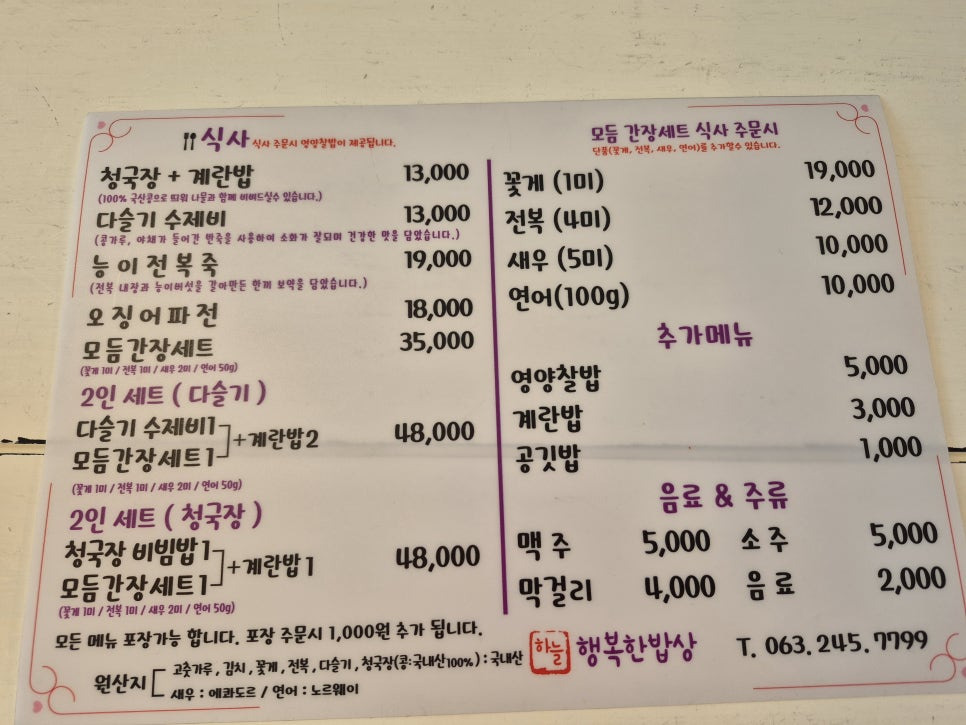 식사 식사 주문시 영양찰밥이 제공됩니다.
청국장 + 계란밥 13,000
(100% 국산콩으로 띄워 나물과 함께 비벼드실수 있습니다.)
다슬기 수제비 13,000
(콩가루, 야채가 들어간 반죽을 사용하여 소화가 잘되며 건강한 맛을 담았습니다.)
능이전복죽 19,000
(전복 내장과 능이버섯을 갈아만든 한끼 보약을 담았습니다.)
오징어파전 18,000
모듬간장세트 35,000
(꽃게 1미 / 전복 1미 / 새우 2미 / 연어 50g)
2인 세트 ( 다슬기 )
다슬기 수제비1
모듬간장세트1
+계란밥2 48,000
(꽃게 1미 / 전복 1미 / 새우 2미 / 연어 50g)
2인 세트 ( 청국장 )
청국장 비빔밥1
모듬간장세트1
+계란밥1 48,000
(꽃게 1미 / 전복 1미 / 새우 2미 / 연어 50g)
모듬 간장세트 식사 주문시
단품(꽃게, 전복, 새우, 연어)를 추가할수 있습니다.
꽃게 (1미) 19,000
전복 (4미) 12,000
새우 (5미) 10,000
연어(100g) 10,000
추가메뉴
영양찰밥 5,000
계란밥 3,000
공깃밥 1,000
음료 & 주류
맥주 5,000 소주 5,000
막걸리 4,000 음료 2,000
모든 메뉴 포장가능 합니다. 포장 주문시 1,000원 추가 됩니다.
원산지
고춧가루, 김치, 꽃게, 전복, 다슬기, 청국장(콩:국내산100%) : 국내산
새우 : 에콰도르 / 연어 : 노르웨이
하늘 행복한밥상 T. 063. 245. 7799